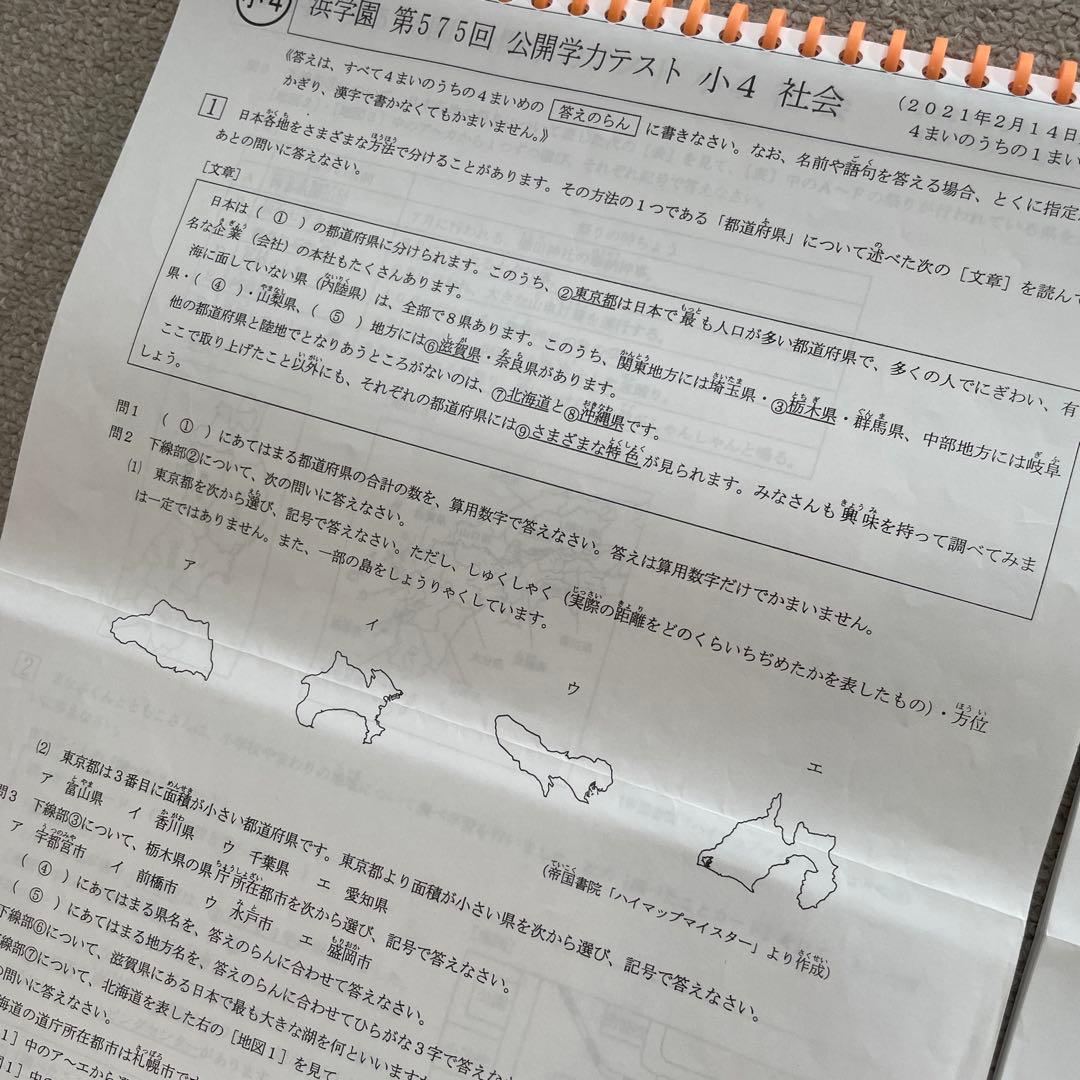 小4
浜学園 第575回 公開学力テスト 小4 社会
(2021年2月14日
4まいのうちの1まい
《答えは、すべて4まいのうちの4まいめの 答えのらん に書きなさい。なお、名前や語句を答える場合、とくに指定
かぎり、漢字で書かなくてもかまいません。》
1 日本各地をさまざまな方法で分けることがあります。その方法の1つである「都道府県」について述べた次の[文章]を読んで
あとの問いに答えなさい。
[文章]
日本は( ① )の都道府県に分けられます。このうち、②東京都は日本で最も人口が多い都道府県で、多くの人でにぎわい、有
名な企業(会社)の本社もたくさんあります。
海に面していない県(内陸県)は、全部で8県あります。このうち、関東地方には埼玉県・③栃木県・群馬県、中部地方には岐阜
県・( ④ )・山梨県、( ⑤ )地方には⑥滋賀県・奈良県があります。
他の都道府県と陸地でとなりあうところがないのは、⑦北海道と⑧沖縄県です。
ここで取り上げたこと以外にも、それぞれの都道府県には⑨さまざまな特色が見られます。みなさんも興味を持って調べてみま
しょう。
問1 ( ① )にあてはまる都道府県の合計の数を、算用数字で答えなさい。答えは算用数字だけでかまいません。
問2 下線部②について、次の問いに答えなさい。
(1) 東京都を次から選び、記号で答えなさい。ただし、しゅくしゃく(実際の距離をどのくらいちぢめたかを表したもの)・方位
は一定ではありません。また、一部の島をしょうりゃくしています。
ア
イ
ウ
エ
(帝国書院「ハイマップマイスター」より作成)
(2) 東京都は3番目に面積が小さい都道府県です。東京都より面積が小さい県を次から選び、記号で答えなさい。
ア 富山県 イ 香川県 ウ 千葉県 エ 愛知県
問3 下線部③について、栃木県の県庁所在都市を次から選び、記号で答えなさい。
ア 宇都宮市 イ 前橋市 ウ 水戸市 エ 盛岡市
( ④ )にあてはまる県名を、答えのらんに合わせて答えなさい。
( ⑤ )にあてはまる地方名を、答えのらんに合わせてひらがな3字で答
下線部⑥について、滋賀県にある日本で最も大きな湖を何といいますか
下線部⑦について、北海道を表した右の[地図1]を見て
の問いに答えなさい。
海道の道庁所在都市は札幌市です
1]中のア~エから